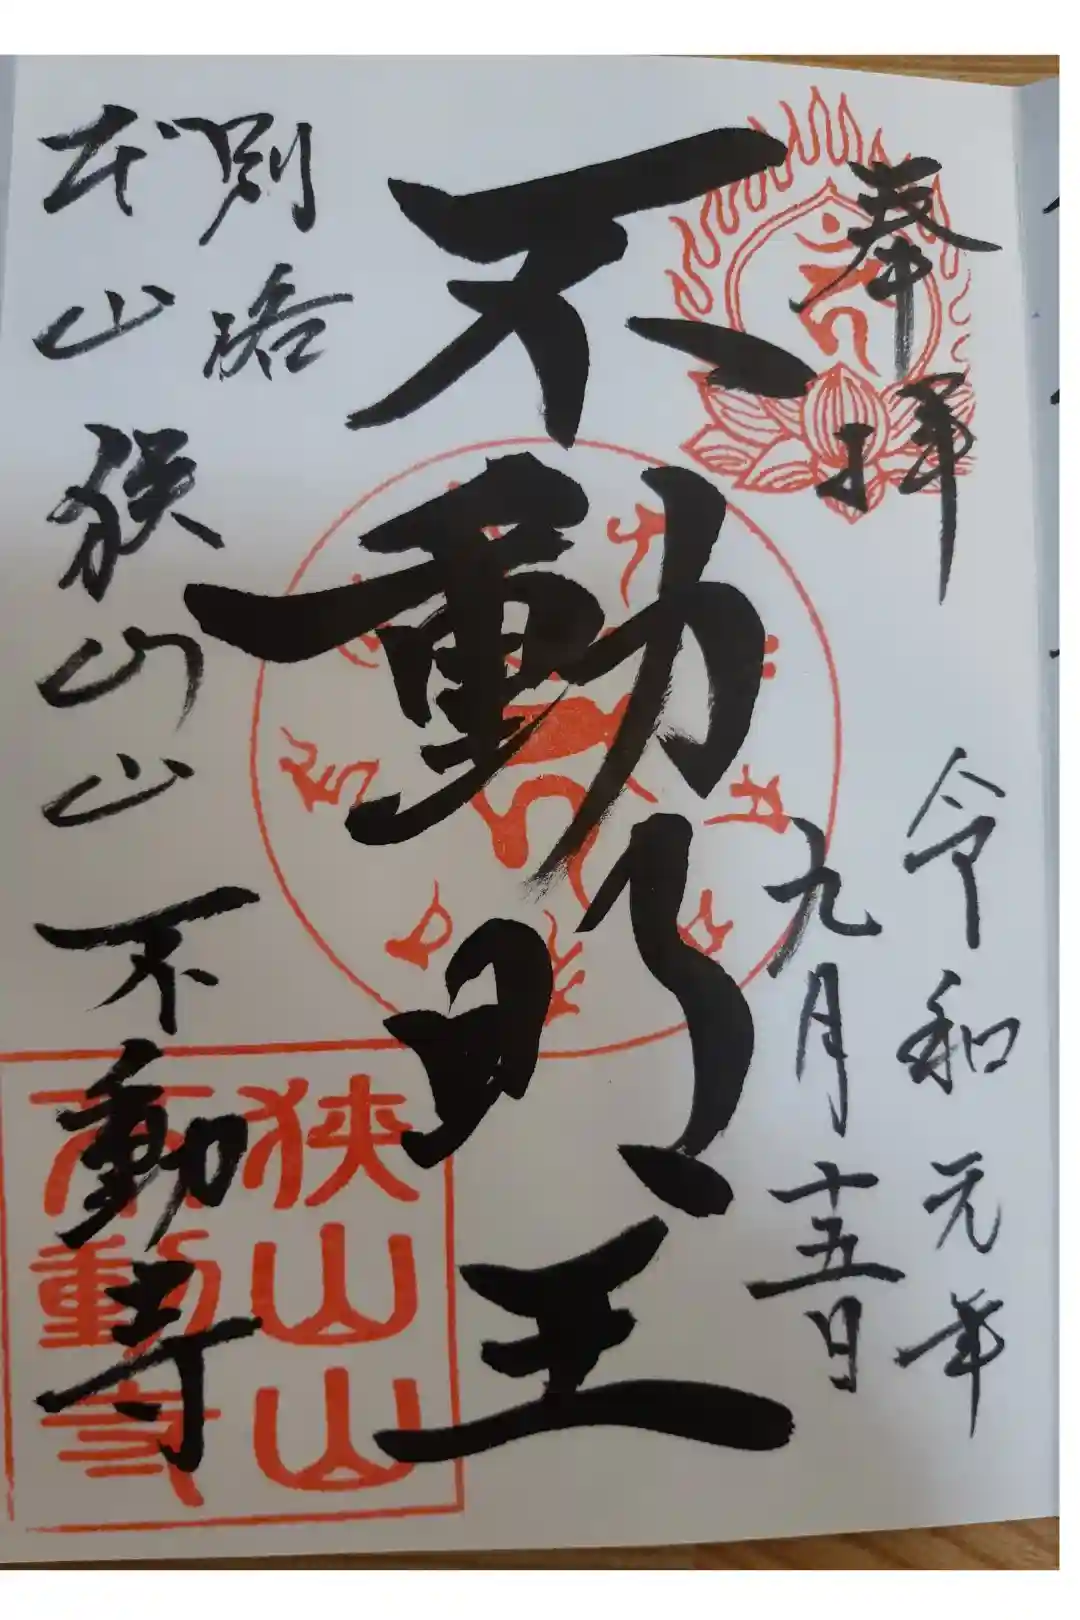 奉拝
令和元年
九月十五日
不動明王
別格
本山 狭山山 不動寺
狭山山
不動寺